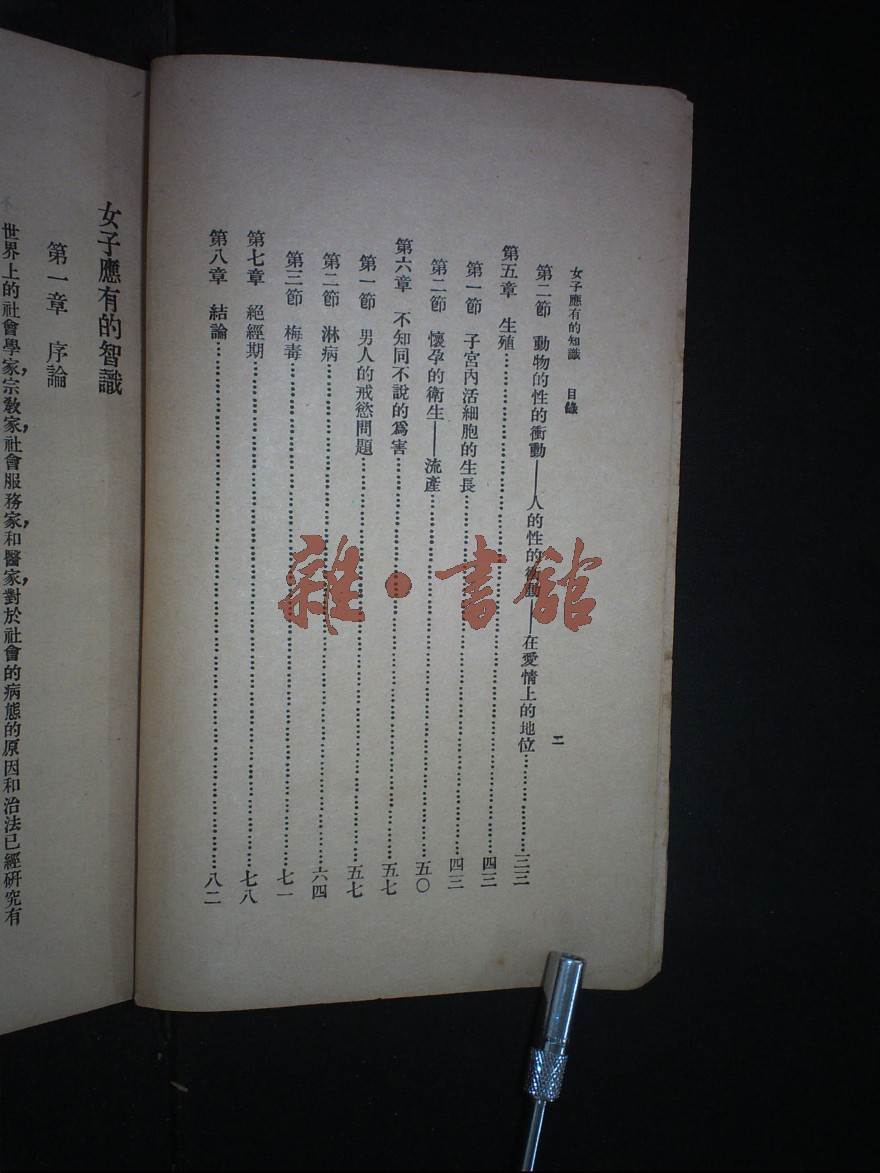 女子應有的知識　目錄
二
第二節　動物的性的衝動——人的性的衝動——在愛情上的地位…………三三
第五章　生殖…………四三
第一節　子宮內活細胞的生長…………四三
第二節　懷孕的衛生——流產…………五〇
第六章　不知同不說的爲害…………五七
第一節　男人的戒慾問題…………五七
第二節　淋病…………六四
第三節　梅毒…………七一
第七章　絕經期…………七八
第八章　結論…………八二
女子應有的智識
第一章　序論
世界上的社會學家，宗敎家，社會服務家，和醫家，對於社會的病態的原因和治法已經研究有
雜·書館